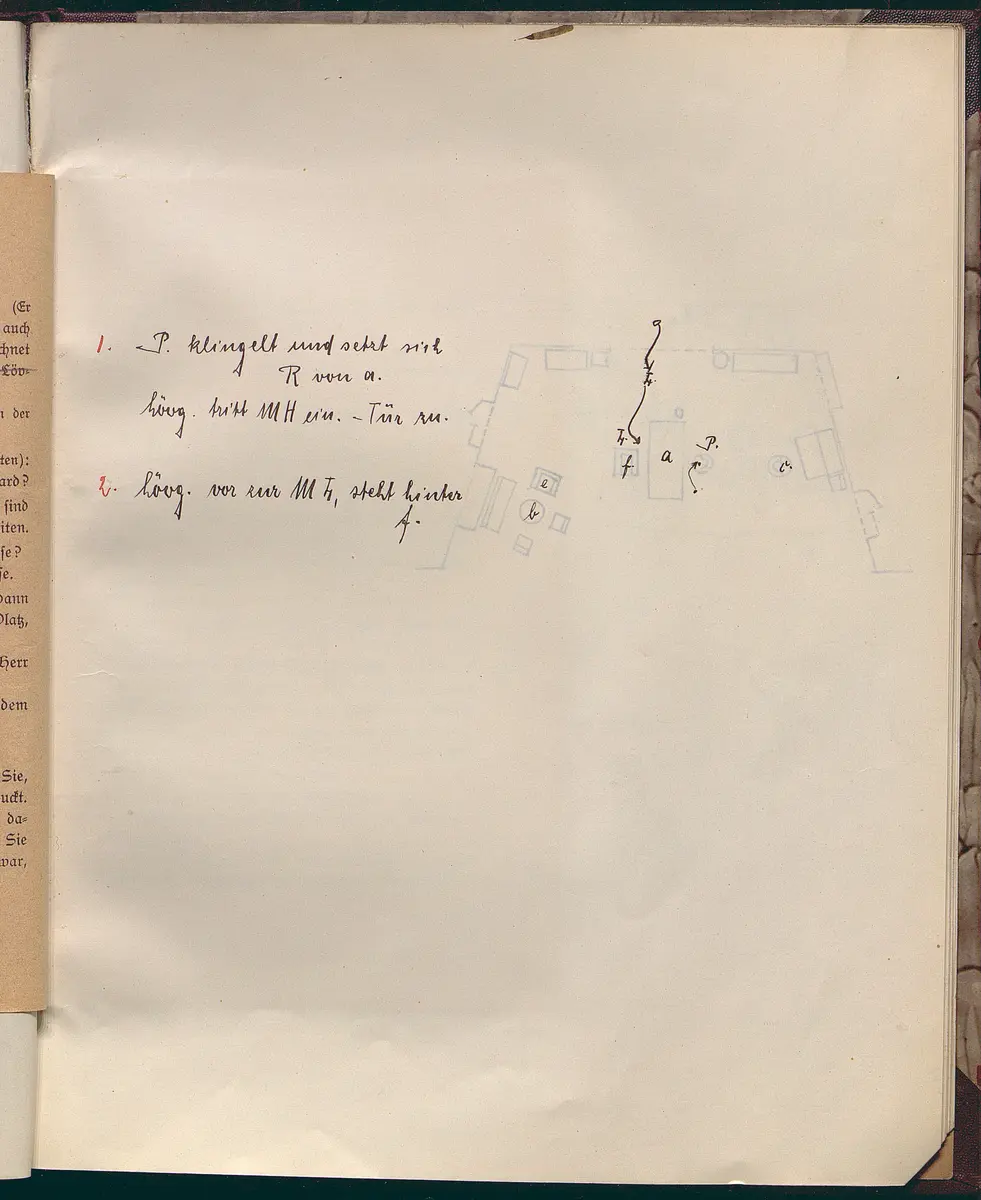 (Er
auch
chnet
Löv-
n der
ten):
ard?
sind
iten.
se?
se.
dann
Platz,
Herr
dem
Sie,
uckt.
da-
Sie
war,
1. P. klingelt und setzt sich
R von a.
Lövg. tritt MH ein. – Tür zu.
2. Lövg. vor zur M L, steht hinter
f.
L.
L.
P.
f
a
c.
e
b